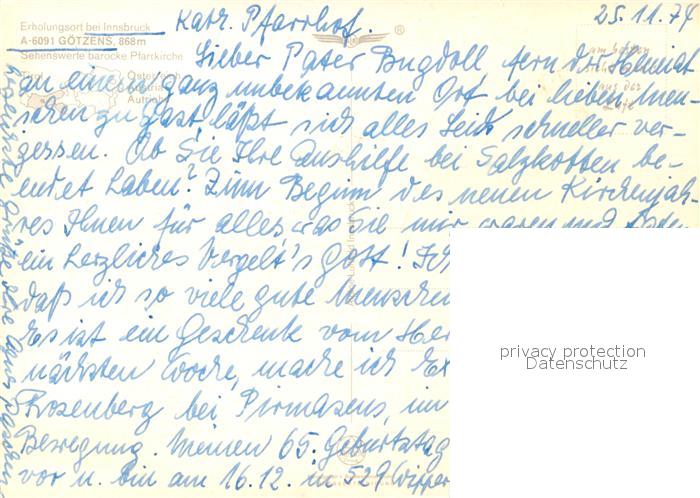 Erholungsort bei Innsbruck
A-6091 GÖTZENS, 868m
Sehenswerte barocke Pfarrkirche
Tirol
Österreich
Kath. Pfarrhof.
25.11.74
Lieber Pater Bugdoll fern der Heimat
an einem ganz unbekannten Ort bei lieben Men-
schen zu Gast läßt sich alles Leid schneller ver-
gessen. Ob Sie Ihre Aushilfe bei Salzkotten be-
endet haben? Zum Beginn des neuen Kirchenjah-
res Ihnen für alles was Sie mir waren und
ein herzliches Vergelt's Gott! Ich
daß ich so viele gute Menschen
Es ist ein Geschenk vom Her
nächsten Woche, mache ich Ex
Rosenberg bei Pirmasens, im
Bewegung. Meinen 65. Geburtstag
vor u. bin am 16.12. in 529 Wipper
privacy protection
Datenschutz